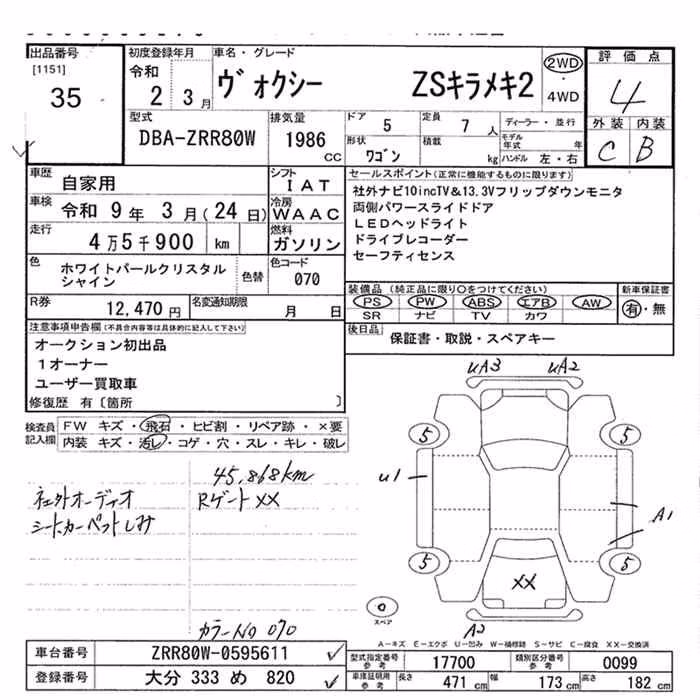 出品番号
[1151]
35
初度登録年月
令和
2 3月
車名・グレード
ヴォクシー ZSキラメキ2
2WD
4WD
評価点
4
外装 内装
C B
型式
DBA-ZRR80W
排気量
1986
CC
ドア
5
定員
7 人
形状
ワゴン
積載
kg
ディーラー・並行
モデル年式 年
ハンドル 左・右
車歴
自家用
車検
令和 9年 3月(24日)
走行
4万5千900 km
シフト
IAT
冷房
WAAC
燃料
ガソリン
色
ホワイトパールクリスタル
シャイン
色替
色コード
070
R券
12,470円
名変通知期限
月 日
セールスポイント(正常に機能するものに限ります)
社外ナビ10incTV&13.3Vフリップダウンモニタ
両側パワースライドドア
LEDヘッドライト
ドライブレコーダー
セーフティセンス
装備品(純正品に限り○をつけてください)
PS PW ABS エアB AW
SR ナビ TV カワ
新車保証書
有・無
後日品
保証書・取説・スペアキー
注意事項申告欄(不具合内容等は具体的に記入して下さい)
オークション初出品
1オーナー
ユーザー買取車
修復歴 有〔箇所 〕
検査員
記入欄
FW キズ・飛石・ヒビ割・リペア跡・×要
内装 キズ・汚し・コゲ・穴・スレ・キレ・破レ
45,868km
社外オーディオ
Rゲート××
シートカーペットしみ
カラーNo 070
uA3 uA2
5 5
u1
A1
5 5
××
スペア
A2
A-キズ E-エクボ U-凹み W-補修跡 S-サビ C-腐食 XX-交換済
車台番号
ZRR80W-0595611
登録番号
大分 333 め 820
型式指定番号
参考
17700
類別区分番号
参考
0099
車庫証明用
参考
長さ
471 cm
幅
173 cm
高さ
182 cm